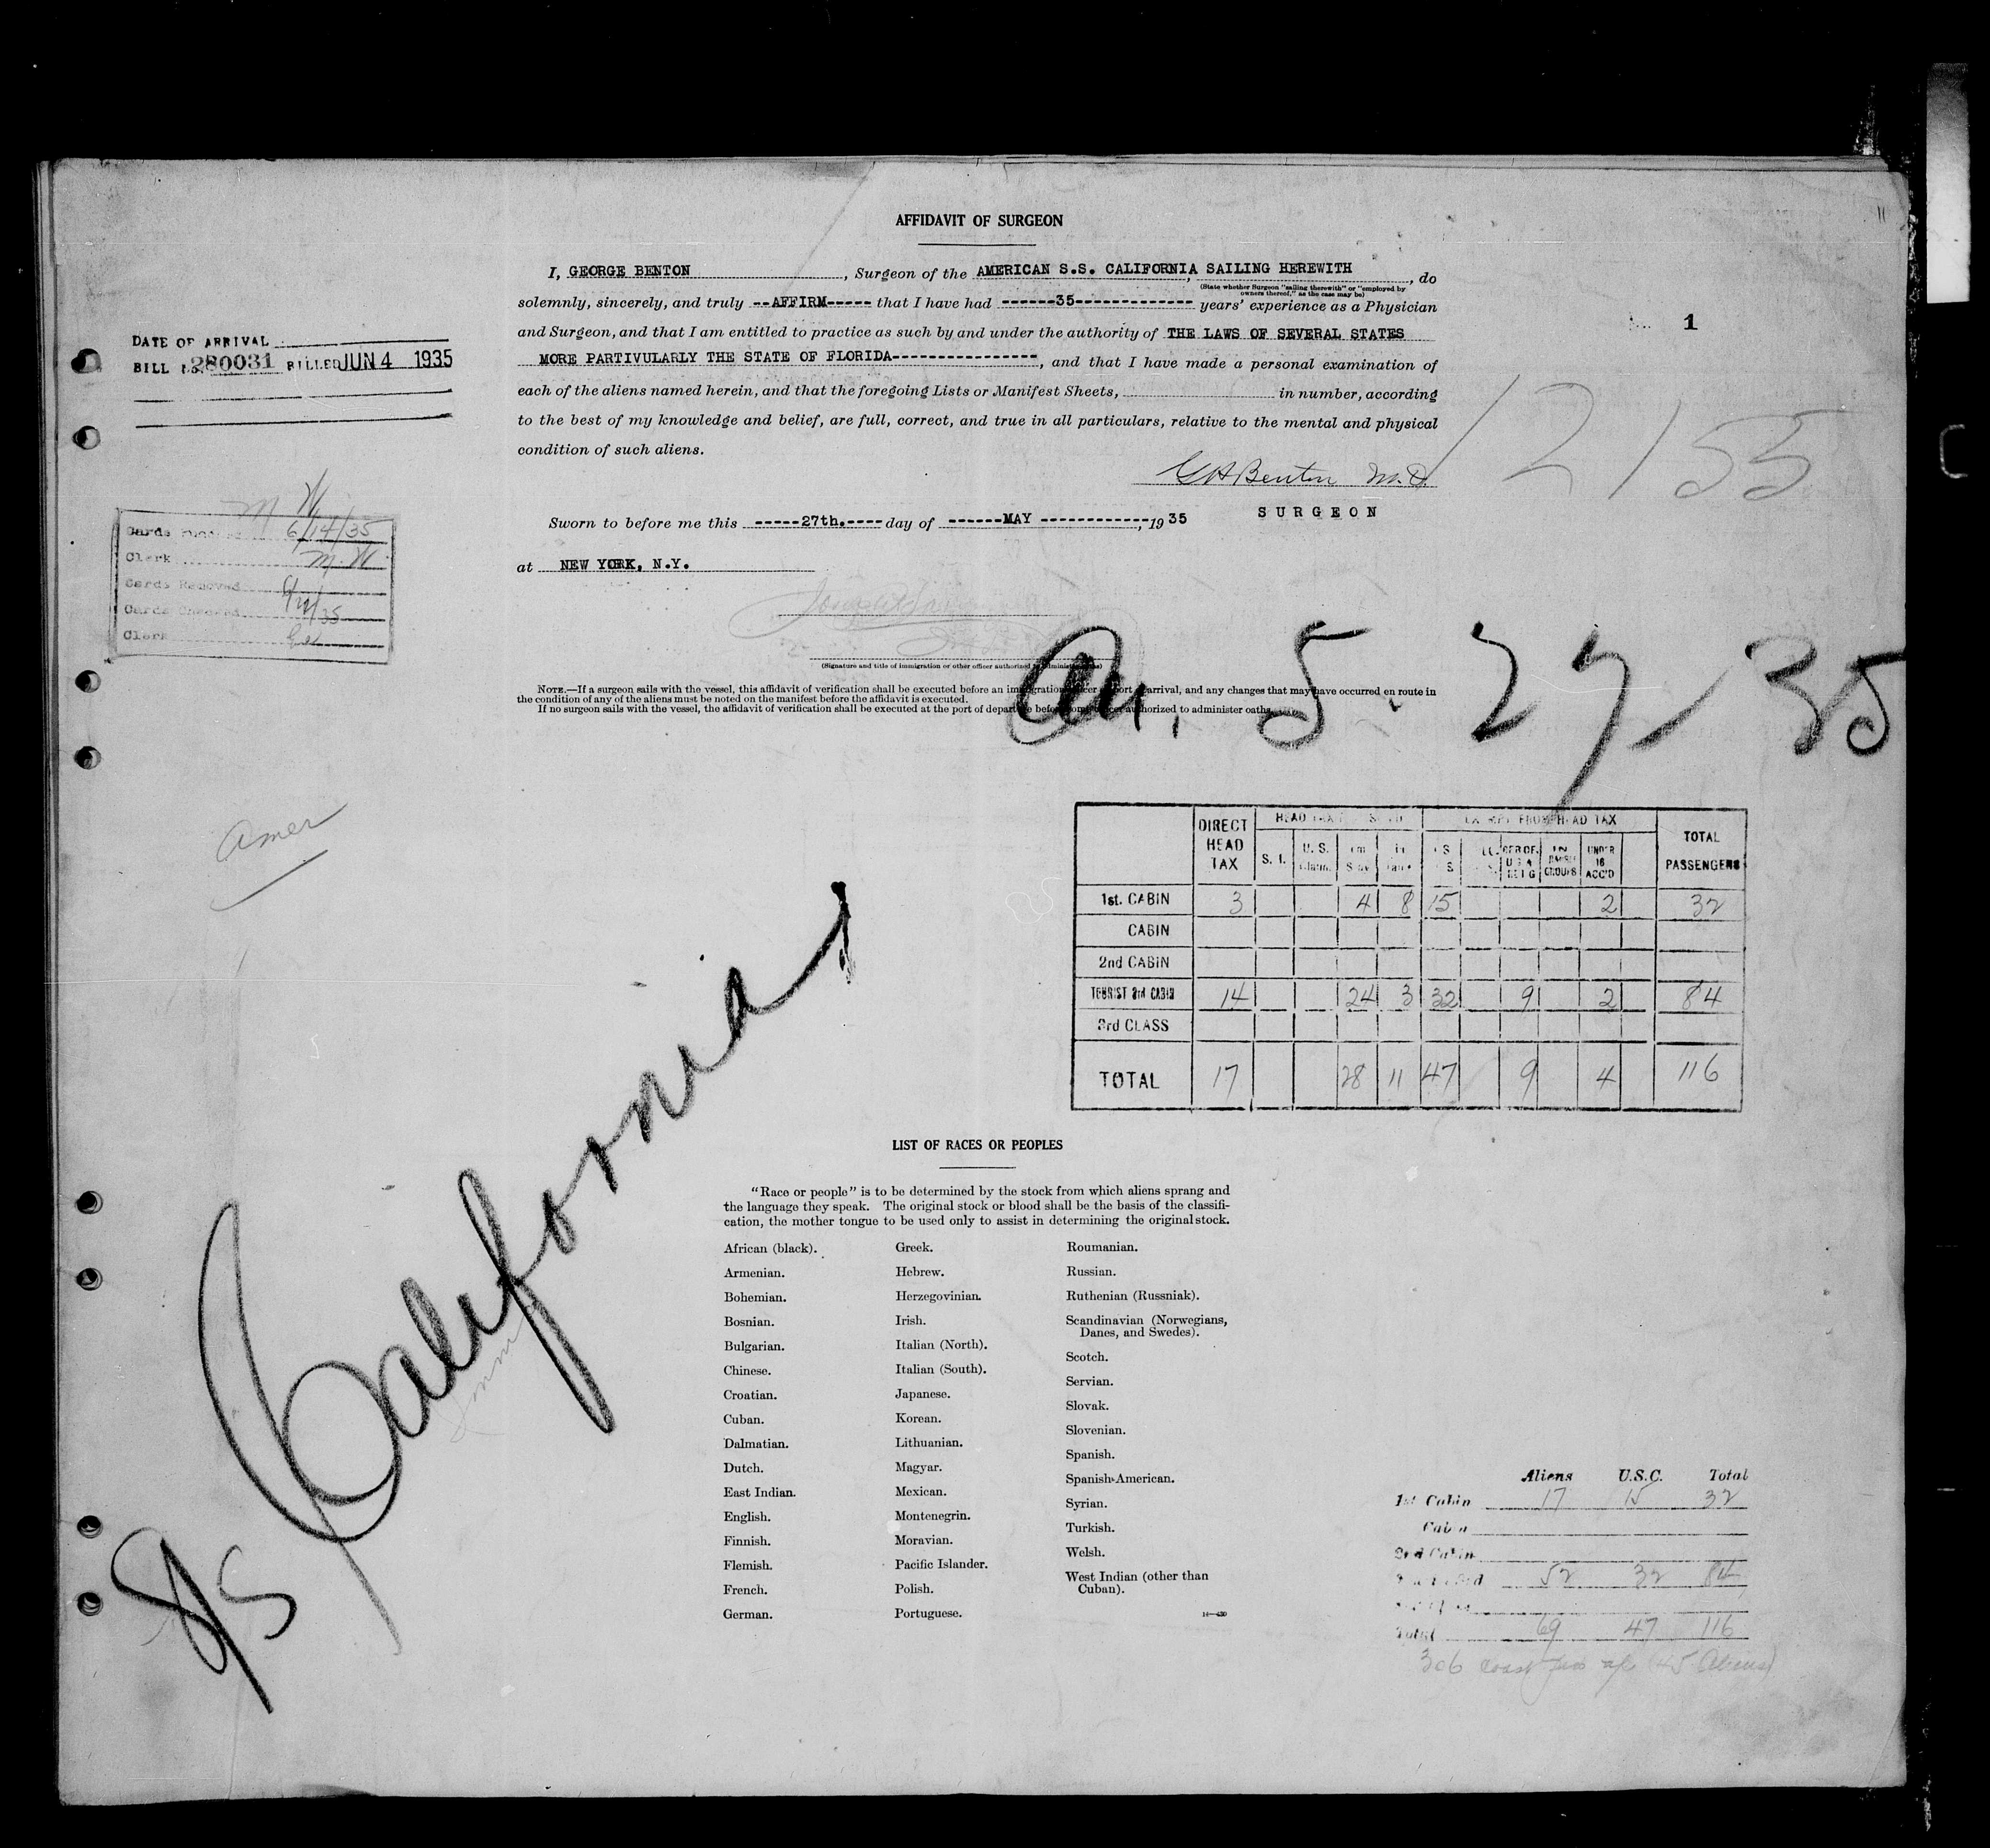 AFFIDAVIT OF SURGEON
I, GEORGE BENTON, Surgeon of the AMERICAN S.S. CALIFORNIA, SAILING HEREWITH, do
(State whether Surgeon "sailing therewith" or "employed by
owners thereof," as the case may be)
solemnly, sincerely, and truly --AFFIRM----- that I have had ------35------------- years' experience as a Physician
and Surgeon, and that I am entitled to practice as such by and under the authority of THE LAWS OF SEVERAL STATES
MORE PARTIVULARLY THE STATE OF FLORIDA----------------, and that I have made a personal examination of
each of the aliens named herein, and that the foregoing Lists or Manifest Sheets, in number, according
to the best of my knowledge and belief, are full, correct, and true in all particulars, relative to the mental and physical
condition of such aliens.
1
DATE OF ARRIVAL
BILL 280031 BILLED JUN 4 1935
12155
GHBenton M.D.
SURGEON
Sworn to before me this -----27th.---- day of ------MAY ------------, 19 35
at NEW YORK, N.Y.
M W
Cards 6/14/35
Clerk M.W.
Cards Removed
Cards Checked
Clerk
(Signature and title of immigration or other officer authorized to administer oaths)
Arr. 5-27-35
NOTE.—If a surgeon sails with the vessel, this affidavit of verification shall be executed before an immigration officer at port of arrival, and any changes that may have occurred en route in
the condition of any of the aliens must be noted on the manifest before the affidavit is executed.
If no surgeon sails with the vessel, the affidavit of verification shall be executed at the port of departure before some officer authorized to administer oaths.
Amer
S/S California
DIRECT HEAD TAX
HEAD TAX
EXEMPT FROM HEAD TAX
TOTAL PASSENGERS
S. I. U. S. UNDER 16 ACC'D
1st. CABIN 3 4 8 15 2 32
CABIN
2nd CABIN
TOURIST 3rd CABIN 14 24 3 32 9 2 84
3rd CLASS
TOTAL 17 28 11 47 9 4 116
LIST OF RACES OR PEOPLES
"Race or people" is to be determined by the stock from which aliens sprang and
the language they speak. The original stock or blood shall be the basis of the classifi-
cation, the mother tongue to be used only to assist in determining the original stock.
African (black).
Armenian.
Bohemian.
Bosnian.
Bulgarian.
Chinese.
Croatian.
Cuban.
Dalmatian.
Dutch.
East Indian.
English.
Finnish.
Flemish.
French.
German.
Greek.
Hebrew.
Herzegovinian.
Irish.
Italian (North).
Italian (South).
Japanese.
Korean.
Lithuanian.
Magyar.
Mexican.
Montenegrin.
Moravian.
Pacific Islander.
Polish.
Portuguese.
Roumanian.
Russian.
Ruthenian (Russniak).
Scandinavian (Norwegians,
Danes, and Swedes).
Scotch.
Servian.
Slovak.
Slovenian.
Spanish.
Spanish-American.
Syrian.
Turkish.
Welsh.
West Indian (other than
Cuban).
Aliens U.S.C. Total
1st Cabin 17 15 32
Cabin
2nd Cabin
52 32 84
Total 69 47 116
306 Coast (45 Aliens)